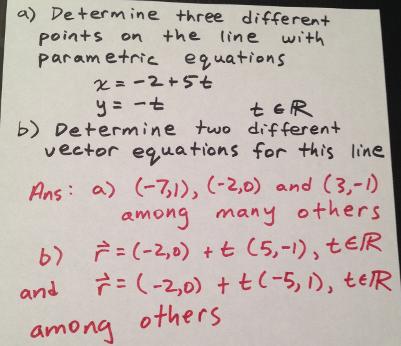 a) Determine three different
points on the line with
parametric equations
x = -2+5t
y = -t t ∈ ℝ
b) Determine two different
vector equations for this line
Ans: a) (-7,1), (-2,0) and (3,-1)
among many others
b) r⃗ = (-2,0) + t (5,-1), t∈ℝ
and r⃗ = (-2,0) + t(-5,1), t∈ℝ
among others